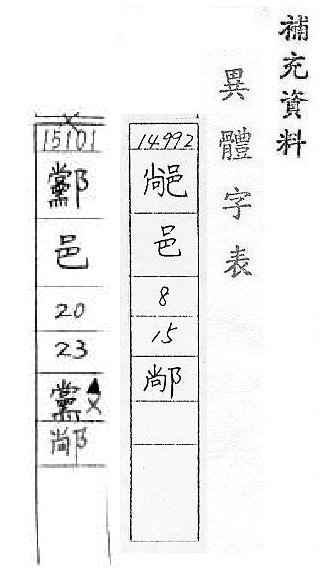 補充資料
異體字表
14992
邑
8
15
䣊
15101
邑
20
23
黨
䣊